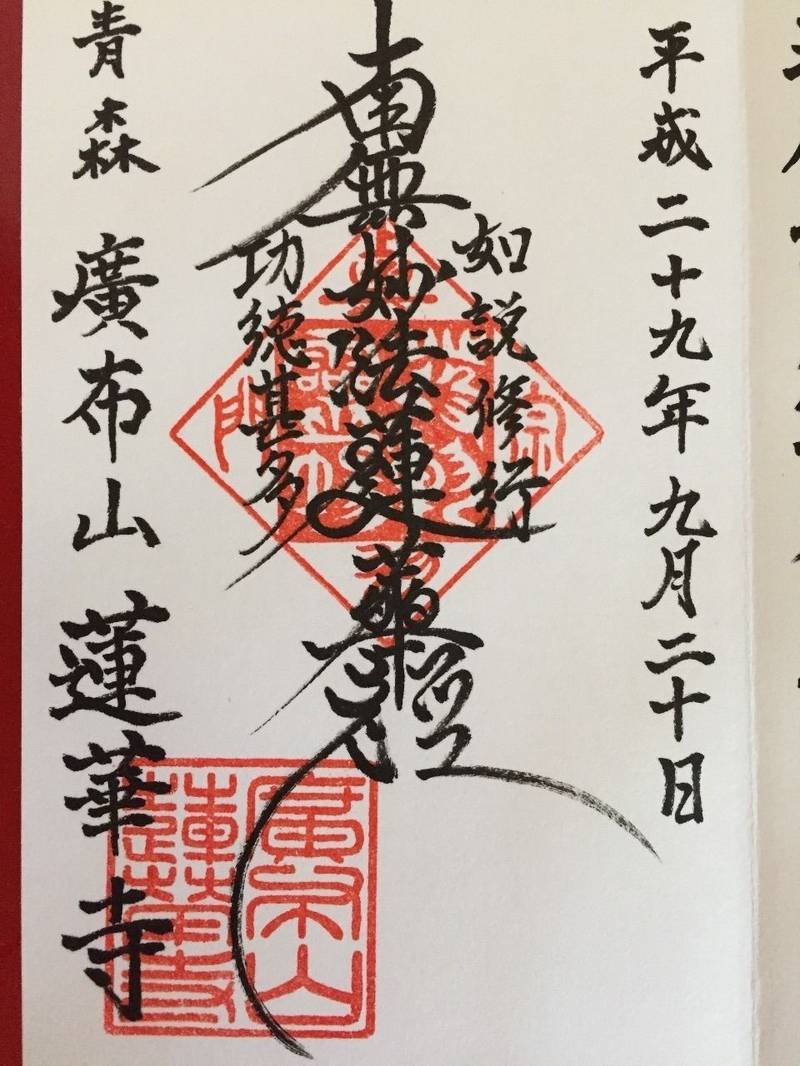 平成二十九年九月二十日
如説修行
南無妙法蓮華経
功徳甚多
青森 廣布山 蓮華寺
廣布山
蓮華寺